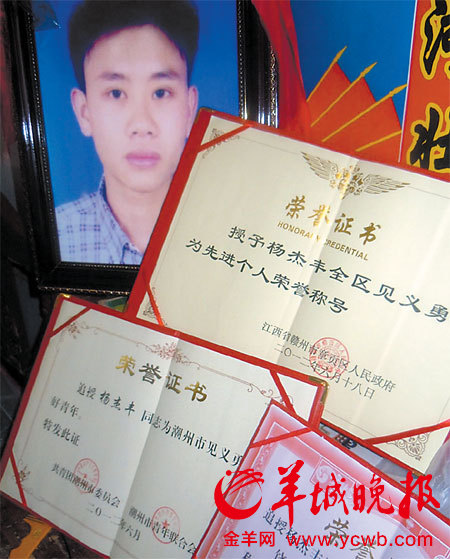 河
壮
荣誉证书
HONORARY CREDENTIAL
授予杨杰丰全区见义勇
为先进个人荣誉称号
江西省赣州市章贡区人民政府
二〇一二年六月十八日
荣誉证书
追授 杨杰丰 同志为潮州市见义勇
好青年。
特发此证
共青团潮州市委员会
潮州市青年联合会
二〇一二年六月
荣誉
追授杨杰
羊城晚报
金羊网 www.ycwb.com